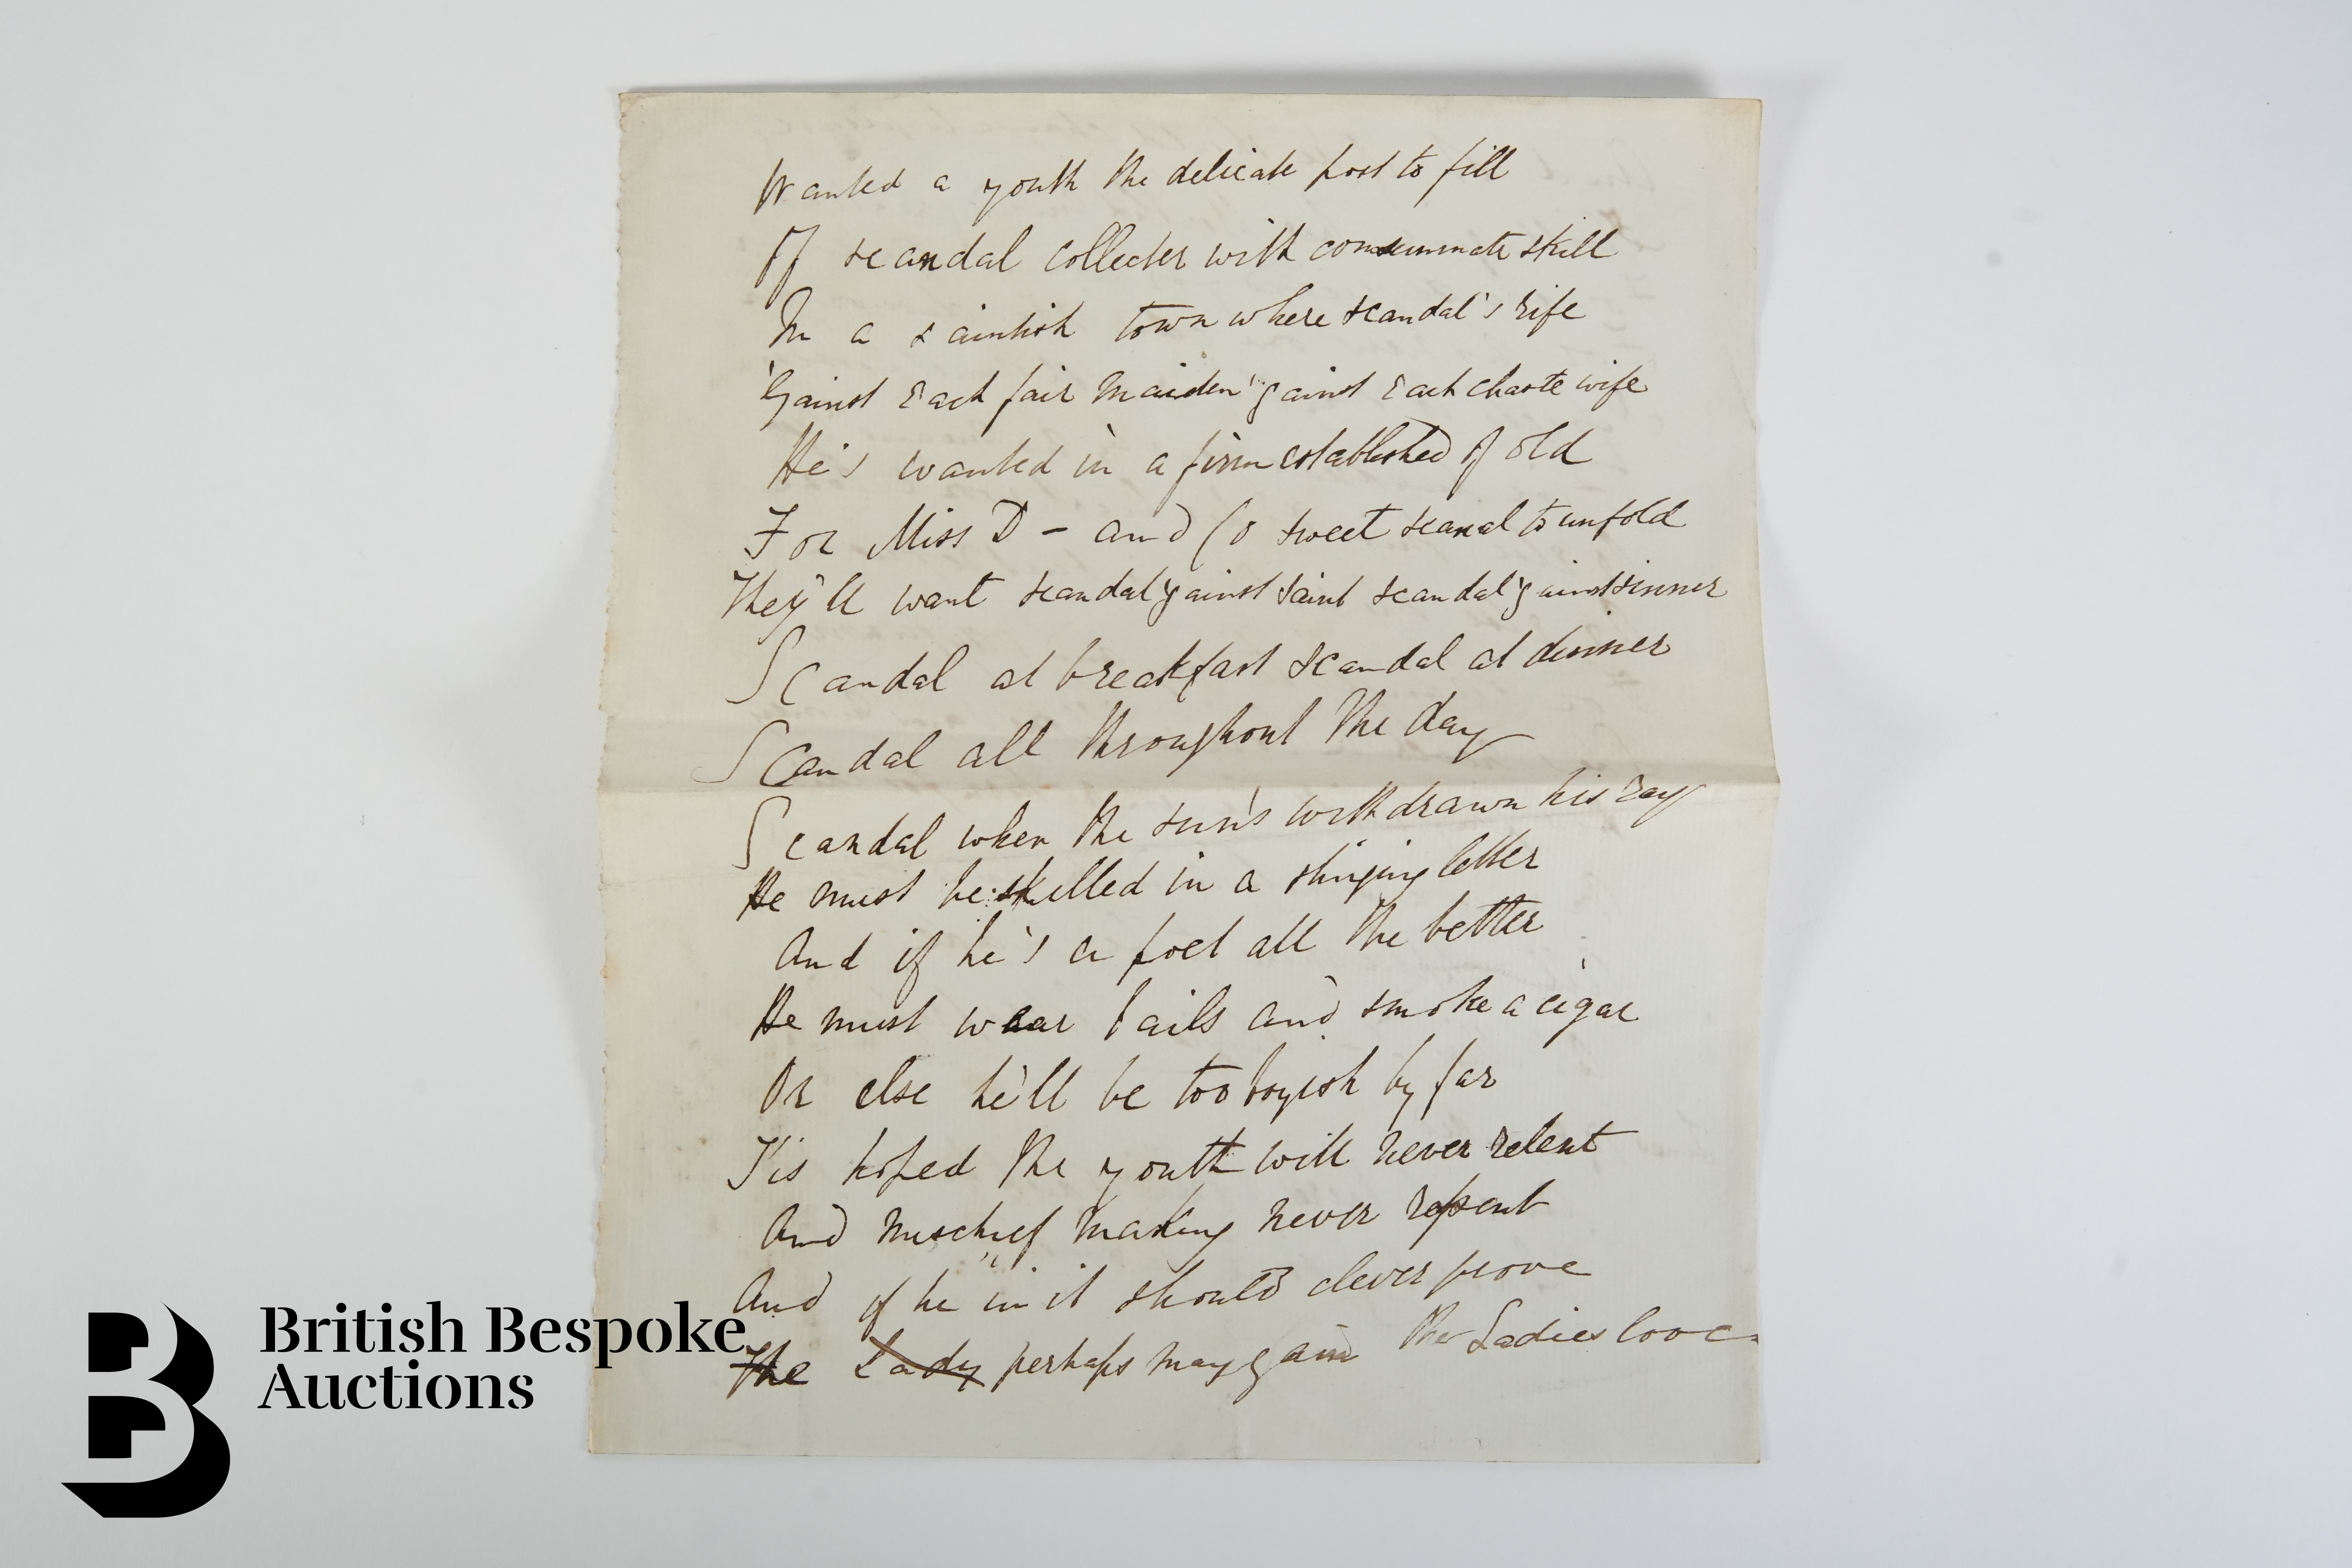 Wanted a youth the delicate post to fill
Of scandal collecter with consummate skill
In a saintish town where scandal's rife
'Gainst each fair maiden 'gainst each chaste wife
He's wanted in a firm established of old
For Miss D - and Co sweet scanal to unfold
They'll want scandal 'gainst saint scandal 'gainst sinner
Scandal at breakfast scandal at dinner
Scandal all throughout the day
Scandal when the sun's withdrawn his ray
He must be skilled in a stinging letter
And if he's a poet all the better
He must wear tails and smoke a cigar
Or else he'll be too boyish by far
T'is hoped the youth will never relent
And mischief making never repent
And if he in it should clever prove
The Lady perhaps may gain the Ladies love
British Bespoke
Auctions